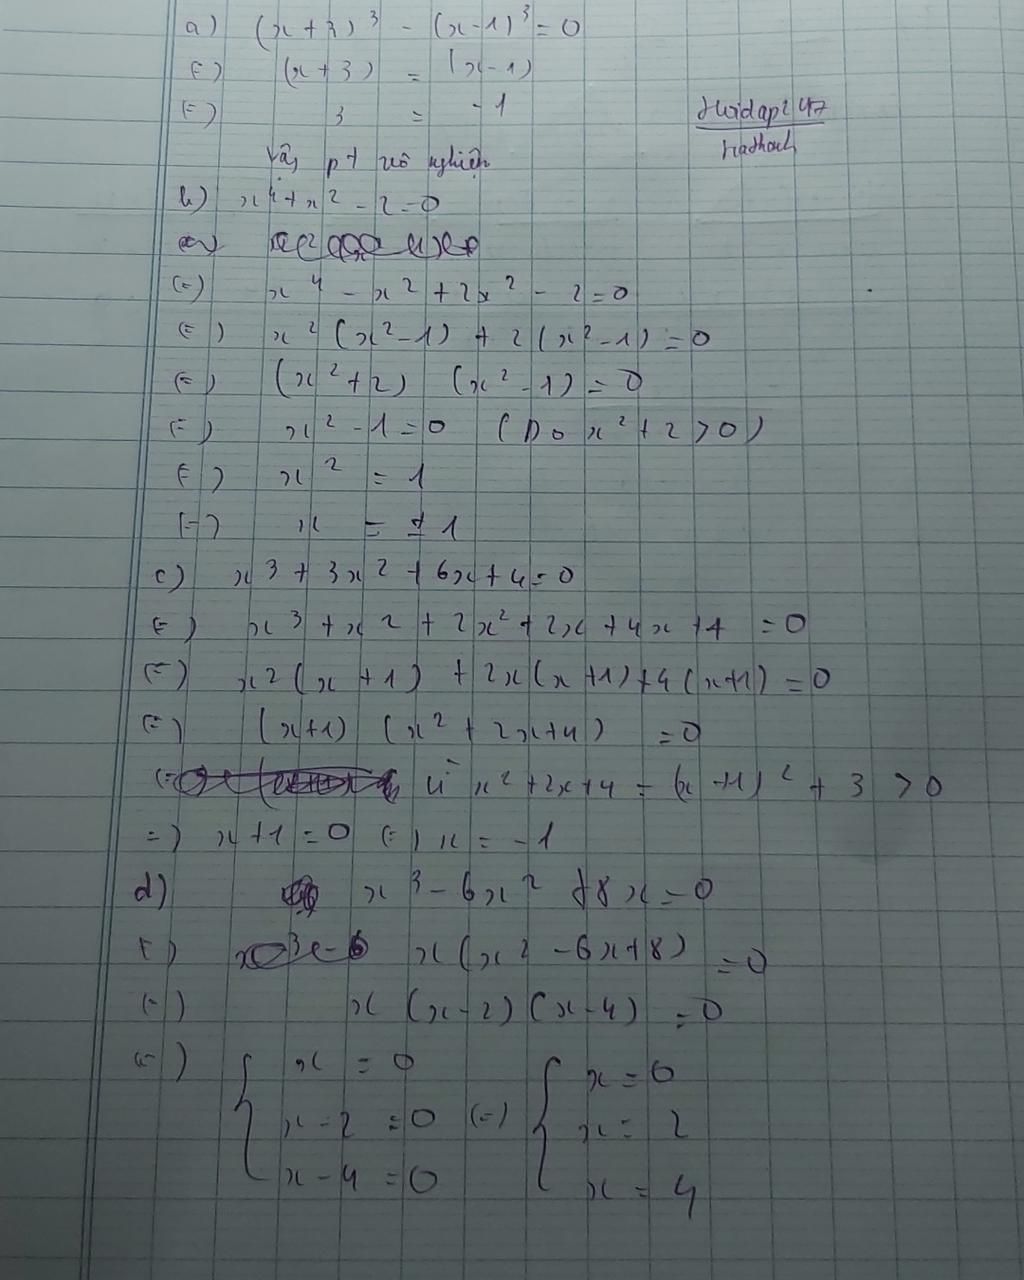 a) (x+3)³ - (x-1)³ = 0
(=) (x+3) = (x-1)
(=) 3 = -1
Hoidap247
Vậy pt vô nghiệm
b) x⁴ + x² - 2 = 0
(=) x⁴ - x² + 2x² - 2 = 0
(=) x²(x²-1) + 2(x²-1) = 0
(=) (x²+2) (x²-1) = 0
(=) x² - 1 = 0 (Do x² + 2 > 0)
(=) x² = 1
(=) x = ±1
c) x³ + 3x² + 6x + 4 = 0
(=) x³ + x² + 2x² + 2x + 4x + 4 = 0
(=) x²(x+1) + 2x(x+1) + 4(x+1) = 0
(=) (x+1) (x² + 2x + 4) = 0
x² + 2x + 4 = (x+1)² + 3 > 0
=) x+1 = 0 (=) x = -1
d) x³ - 6x² + 8x = 0
(=) x(x² - 6x + 8) = 0
(=) x (x-2) (x-4) = 0
(=) { x = 0 { x = 0
x - 2 = 0 (=) x = 2
x - 4 = 0 x = 4